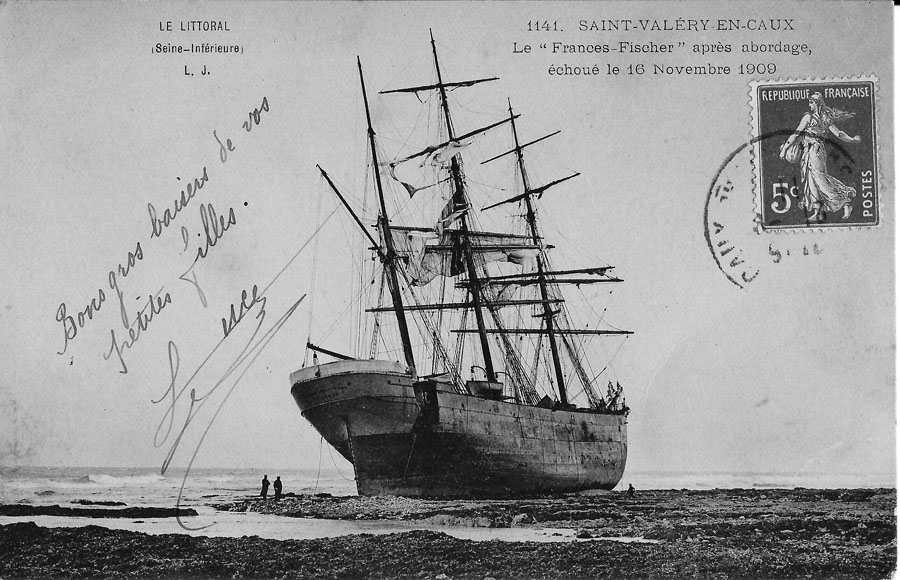 LE LITTORAL
(Seine-Inférieure)
L. J.
1141. SAINT-VALÉRY-EN-CAUX
Le "Frances-Fischer" après abordage,
échoué le 16 Novembre 1909
REPUBLIQUE FRANÇAISE
5c
POSTES
CANY
Bons gros baisers de vos
petites filles.